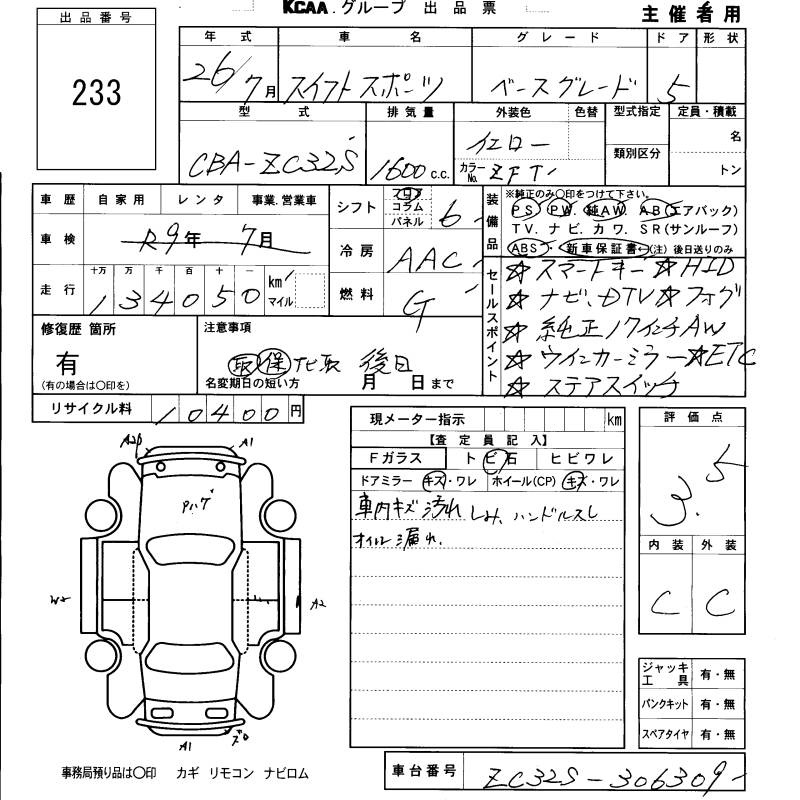 KCAA.グループ 出品票
主催者用
出品番号
233
年式 車名 グレード ドア 形状
26/7月 スイフトスポーツ ベースグレード 5
型式 排気量 外装色 色替 型式指定 定員・積載
CBA-ZC32S 1600c.c. イエロー カラーNo. ZFT 類別区分 名 トン
車歴 自家用 レンタ 事業.営業車
車検 R9年7月
走行 十万 万 千 百 十 一 km マイル
134050
シフト フロア コラム パネル 6
冷房 AAC
燃料 G
装備品 ※純正のみ〇印をつけて下さい。
PS PW. 純AW. AB(エアバック)
TV. ナビ. カワ. SR(サンルーフ)
ABS・新車保証書(注)後日送りのみ
セールスポイント
☆スマートキー ☆HID
☆ナビ、DTV ☆フォグ
☆純正17インチAW
☆ウインカーミラー ☆ETC
☆ステアスイッチ
修復歴 箇所
有
(有の場合は〇印を)
注意事項
取 保 ナビ取 後日
名変期日の短い方 月 日まで
リサイクル料 10400円
現メーター指示 km
【査定員記入】
Fガラス トビ石 ヒビワレ
ドアミラー キズ・ワレ ホイール(CP) キズ・ワレ
車内キズ 汚れ しみ、ハンドルスレ
オイル漏れ、
評価点
3.5
内装 外装
C C
ジャッキ工具 有・無
パンクキット 有・無
スペアタイヤ 有・無
A1
W2
A2
A1
事務局預り品は〇印 カギ リモコン ナビロム
車台番号 ZC32S-306309